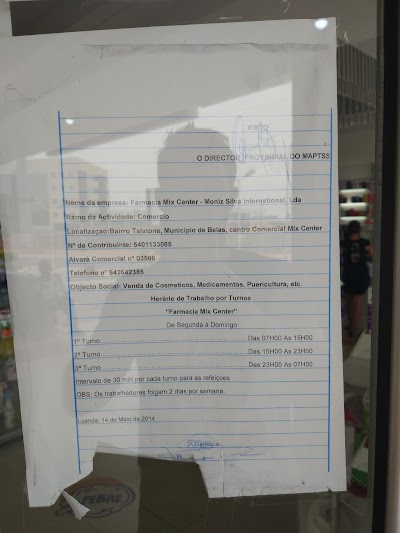 VISTO
O DIRECTOR PROVINCIAL DO MAPTSS
Nome da empresa: Farmacia Mix Center - Moniz Silva International, Lda
Ramo da Actividade: Comercio
Localização:Bairro Talatona, Município de Belas, centro Comercial Mix Center
Nº de Contribuinte: 5401133065
Alvará Comercial nº 03566
Telefone nº 942642385
Objecto Social: Venda de Cosmeticos, Medicamentos, Puericultura, etc.
Horário de Trabalho por Turnos
"Farmacia Mix Center"
De Segunda à Domingo
1º Turno Das 07H00 As 15H00
2º Turno Das 15H00 As 23H00
3º Turno Das 23H00 As 07H00
Intervalo de 30 min por cada turno para as refeições
OBS: Os trabalhadores folgam 2 dias por semana
Luanda, 14 de Maio de 2014
FEBRE